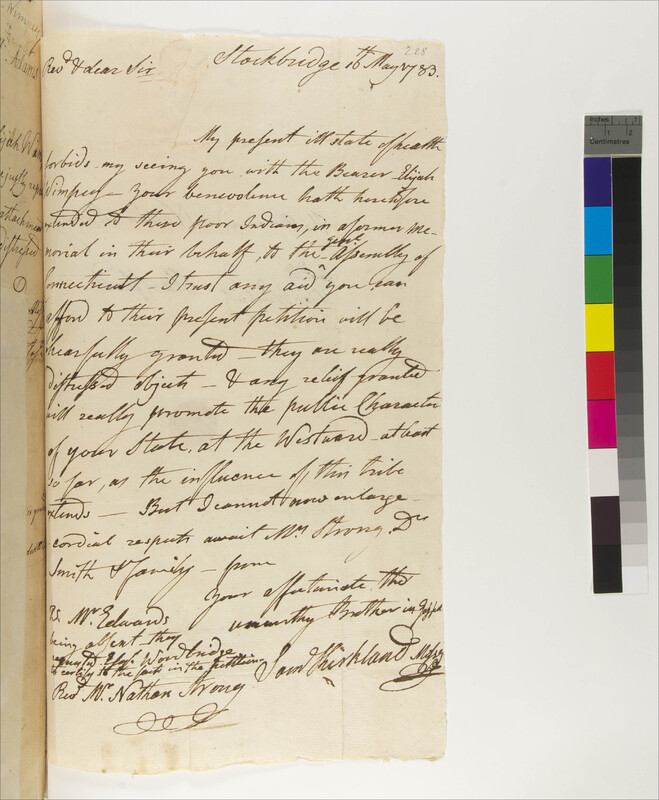 228
Stockbridge 16th May 1783.
Revd & dear Sir
My present ill state of health
forbids my seeing you with the Bearer Elijah
Wimpey – Your benevolence hath heretofore
extended to these poor Indians, in a former me-
morial in their behalf, to the genl Assembly of
Connecticutt – I trust any aid, you can
afford to their present petition will be
chearfully granted – they are really
distressed objects – & any relief granted
will really promote the public Character
of your State, at the Westward – at least
so far, as the influence of this tribe
extends – But I cannot now enlarge –
cordial respects await Mrs Strong, Dr
Smith & family – from
Your affectionate, tho
unworthy Brother in Gospel
Saml Kirkland Missy
PS. Mr. Edwards
being absent they
requested Esqr. Woodbridge
to certify to the facts in the petition
Revd Mr. Nathan Strong
Wimpey
Adams
Elijah Wim
attachment
distressed
Inches
1
2
Centimetres